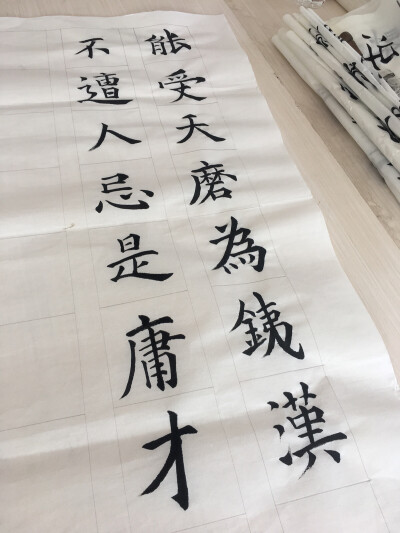 能受天磨為銕漢
不遭人忌是庸才